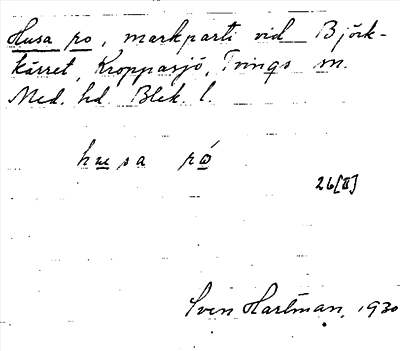 Husa ro, markparti vid Björk-
kärret, Kroppasjö, Tvings sn.
Med. hd Blek. l.
husa ró
26[II]
Sven Hartman, 1930